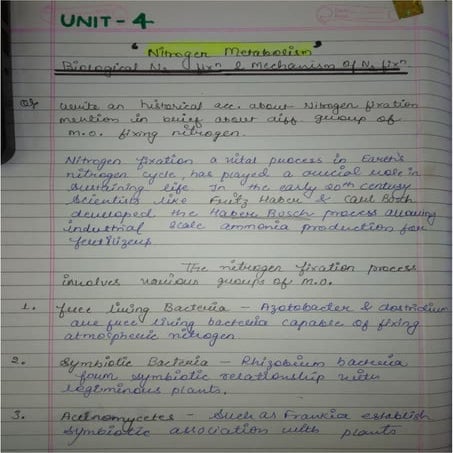 UNIT - 4
"Nitrogen Metabolism"
Biological N2 fixn & Mechanism of N2 fixn
Write an historical acc. about Nitrogen fixation
mention in brief about diff. group of
m.o. fixing nitrogen.
Nitrogen fixation a vital process in Earth's
nitrogen cycle, has played a crucial role in
sustaining life. In the early 20th century
Scientists like Fritz Haber & Carl Bosch
developed the Haber Bosch process allowing
industrial scale ammonia production for
fertilizers
The nitrogen fixation process
involves various groups of m.o.
1. free living Bacteria - Azotobacter & clostridium
are free living bacteria capable of fixing
atmospheric nitrogen.
2. Symbiotic Bacteria - Rhizobium bacteria
form symbiotic relationship with
legiminous plants.
3. Actinomycetes - Such as Frankia establish
Symbiotic association with plants